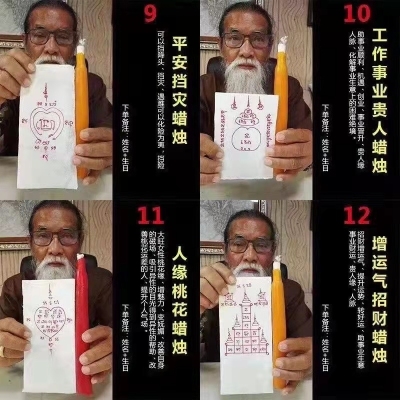 9
平安挡灾蜡烛
可以挡降头、挡灾、遇难可以化险为夷、挡险
下单备注:姓名+生日
10
工作事业贵人蜡烛
助事业顺利、机遇、创业、事业晋升、贵人缘
人脉、化解事业生意上的困难绝境。
下单备注:姓名+生日
11
人缘桃花蜡烛
大旺女性桃花缘、增魅力、变妩媚、改善自身
的磁场、吸引异性的目光得到异性的帮助、改
善桃花运差的人、提升个人气场。
下单备注:姓名+生日
12
增运气招财蜡烛
招财增运气、提升运势、转好运、助事业生意
事业财运、贵人缘、人脉
下单备注:姓名+生日